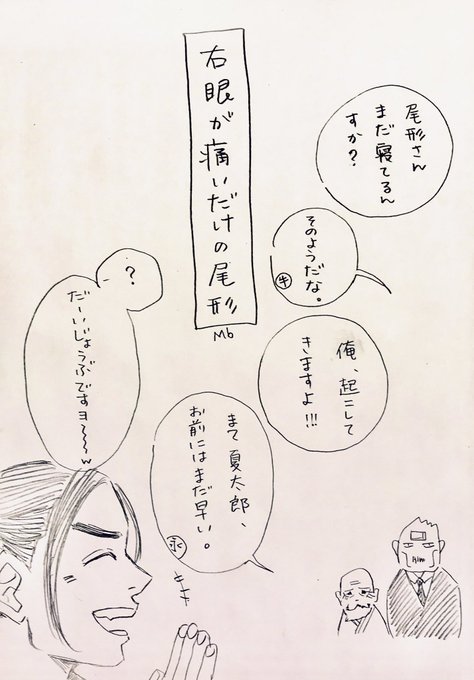 右眼が痛いだけの尾形
M6
尾形さん
まだ寝てるん
すか？
そのようだな。
牛
俺、起こして
きますよ!!!
まて夏太郎、
お前にはまだ早い。
永
？
だーいじょうぶですヨ〜〜〜w